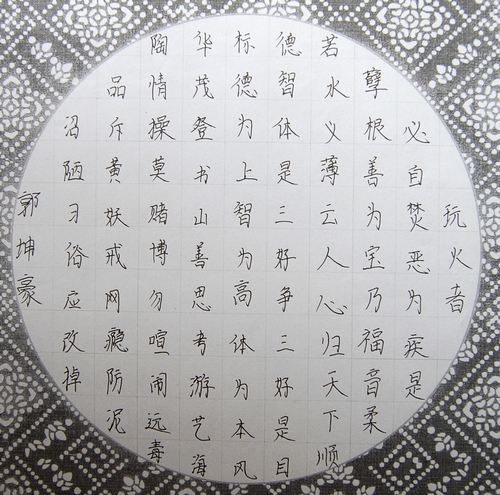 玩火者
必自焚恶为疾是
孽根善为宝乃福音柔
若水义薄云人心归天下顺
德智体是三好争三好是目
标德为上智为高体为本风
华茂登书山善思考游艺海
陶情操莫赌博勿喧闹远毒
品斥黄妖戒网瘾防泥
沼陋习俗应改掉
郭坤豪